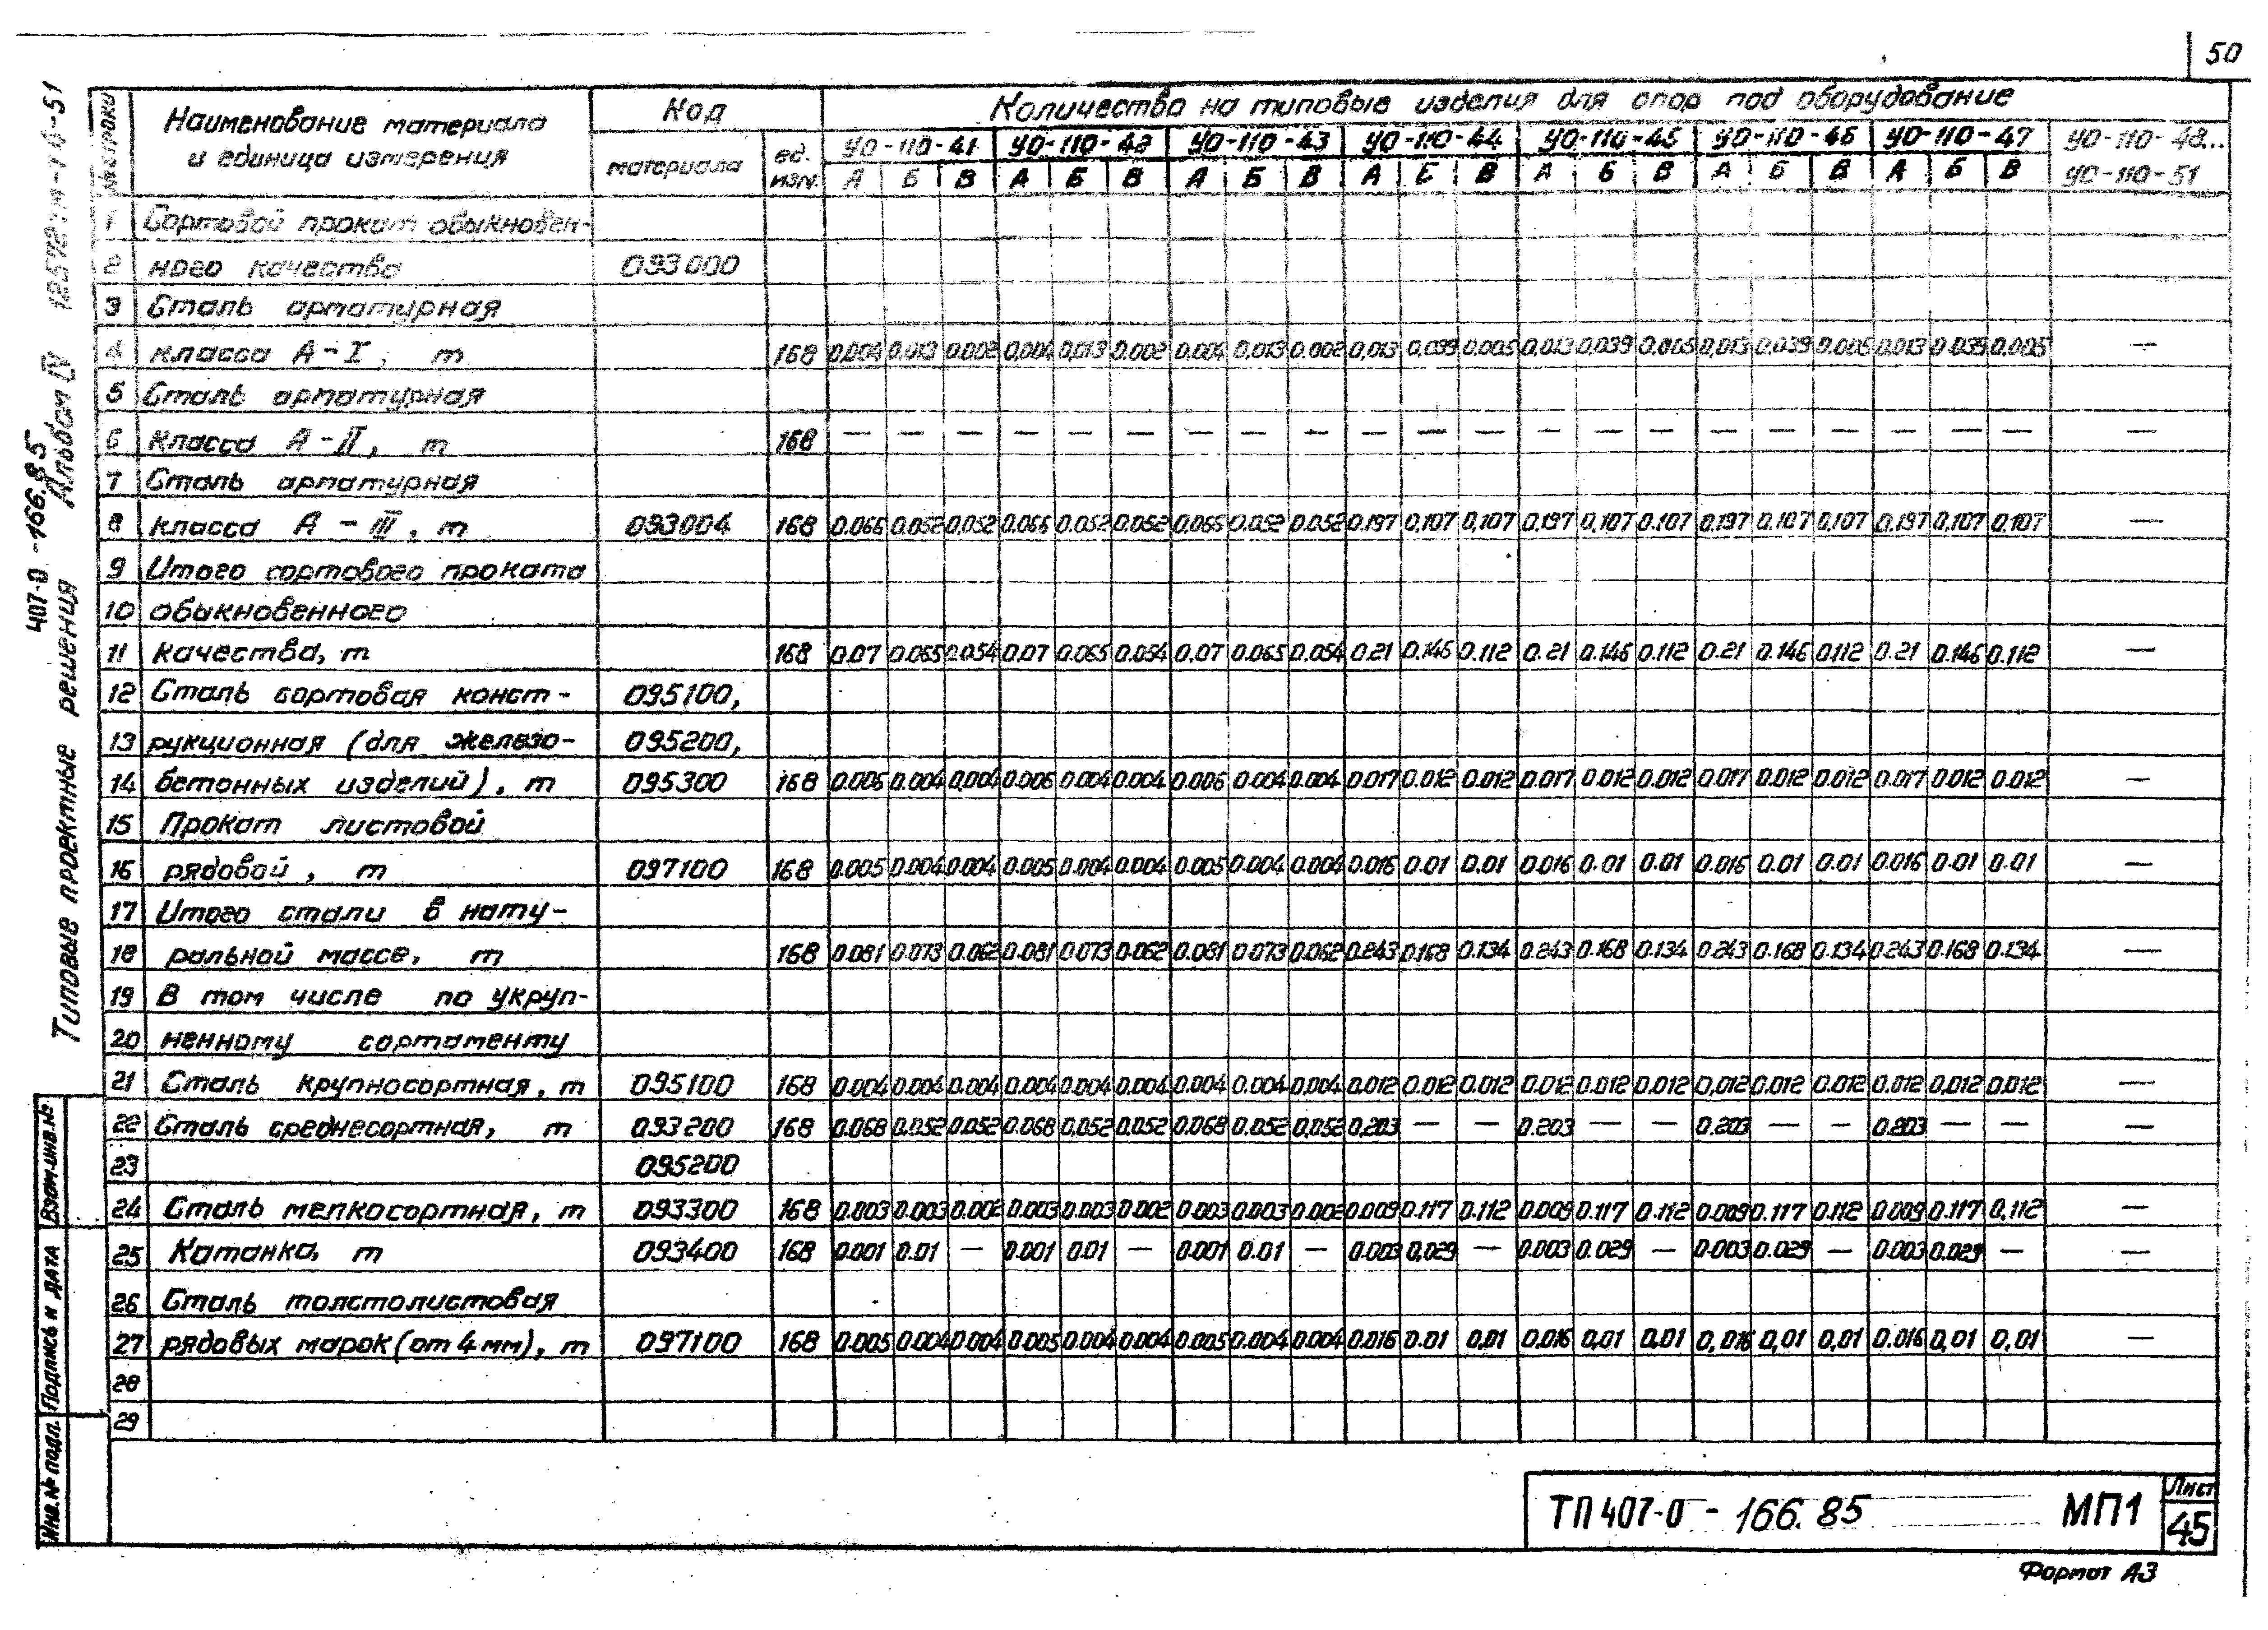 50
Наименование материала
и единица измерения
Код
Количество на типовые изделия для опор под оборудование
№ строки
материала
ед.
изм.
УО-110-41 УО-110-42 УО-110-43 УО-110-44 УО-110-45 УО-110-46 УО-110-47 УО-110-48...
УО-110-51
А Б В А Б В А Б В А Б В А Б В А Б В А Б В
1 Сортовой прокат обыкновен-
2 ного качества 093000
3 Сталь арматурная
4 класса А-I, т 168 0,004 0,013 0.002 0,004 0,013 0.002 0.004 0,013 0.002 0,013 0,039 0.005 0,013 0,039 0.005 0,013 0.039 0,005 0,013 0.039 0,005 —
5 Сталь арматурная
6 класса А-II, т 168 — — — — — — — — — — — — — — — — — — — — — —
7 Сталь арматурная
8 класса А-III, т 093004 168 0.066 0.052 0,052 0,066 0.052 0.052 0.066 0.052 0.052 0.197 0,107 0,107 0.197 0,107 0.107 0,197 0.107 0,107 0,197 0,107 0,107 —
9 Итого сортового проката
10 обыкновенного
11 качества, т 168 0.07 0.065 0.054 0.07 0.065 0.054 0.07 0.065 0.054 0.21 0.146 0.112 0.21 0.146 0.112 0.21 0.146 0.112 0.21 0.146 0.112 —
12 Сталь сортовая конст- 095100,
13 рукционная (для железо- 095200,
14 бетонных изделий), т 095300 168 0.006 0.004 0,004 0.006 0.004 0.004 0.006 0.004 0.004 0.017 0.012 0.012 0.017 0.012 0.012 0.017 0.012 0.012 0.017 0.012 0.012 —
15 Прокат листовой
16 рядовой, т 097100 168 0.005 0.004 0.004 0.005 0.004 0.004 0.005 0.004 0.004 0.016 0.01 0.01 0.016 0.01 0.01 0.016 0.01 0.01 0.016 0.01 0.01 —
17 Итого стали в нату-
18 ральной массе, т 168 0.081 0.073 0.062 0.081 0.073 0.062 0.081 0.073 0.062 0.243 0.168 0.134 0.243 0.168 0.134 0.243 0.168 0.134 0.243 0.168 0.134 —
19 В том числе по укруп-
20 ненному сортаменту
21 Сталь крупносортная, т 095100 168 0.004 0.004 0,004 0.004 0.004 0.004 0.004 0.004 0,004 0.012 0.012 0.012 0.012 0.012 0.012 0,012 0,012 0.012 0.012 0,012 0,012 —
22 Сталь среднесортная, т 093200 168 0.068 0.052 0.052 0.068 0,052 0.052 0.068 0.052 0,052 0,203 — — 0.203 — — 0.203 — — 0.203 — — —
23 095200
24 Сталь мелкосортная, т 093300 168 0.003 0.003 0.002 0.003 0.003 0.002 0.003 0.003 0.002 0.009 0.117 0.112 0.009 0.117 0.112 0.009 0.117 0.112 0.009 0.117 0,112 —
25 Катанка, т 093400 168 0.001 0.01 — 0.001 0.01 — 0.001 0.01 — 0.003 0,029 — 0.003 0.029 — 0.003 0.029 — 0.003 0.029 — —
26 Сталь толстолистовая
27 рядовых марок (от 4 мм), т 097100 168 0.005 0.004 0.004 0.005 0.004 0.004 0.005 0.004 0.004 0.016 0.01 0,01 0,016 0,01 0.01 0,016 0,01 0,01 0.016 0,01 0,01 —
28
29
407-0-166.85
Типовые проектные решения Альбом IV
Взам.инв.№
Подпись и дата
Инв.№ подл.
ТП 407-0-166.85 МП1
Лист
45
Формат А3